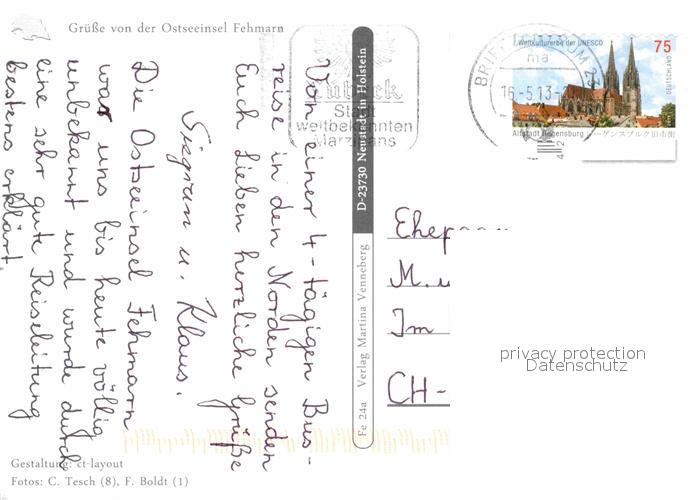 Grüße von der Ostseeinsel Fehmarn
Von einer 4-tägigen Bus-
reise in den Norden senden
Euch Lieben herzliche Grüße
Siegrun u. Klaus.
Die Ostseeinsel Fehmarn
war uns bis heute völlig
unbekannt und wurde durch
eine sehr gute Reiseleitung
bestens erklärt.
Gestaltung: ct-layout
Fotos: C. Tesch (8), F. Boldt (1)
Fe 24a Verlag Martina Venneberg D-23730 Neustadt in Holstein
Lübeck
Stadt
weltbekannten
Marzipans
BRIEFZENTRUM 23
ma
16.-5.13
Weltkulturerbe der UNESCO
75
DEUTSCHLAND
Altstadt Regensburg レーゲンスブルク旧市街
Ehepaar
M. u
Im
CH-
privacy protection
Datenschutz